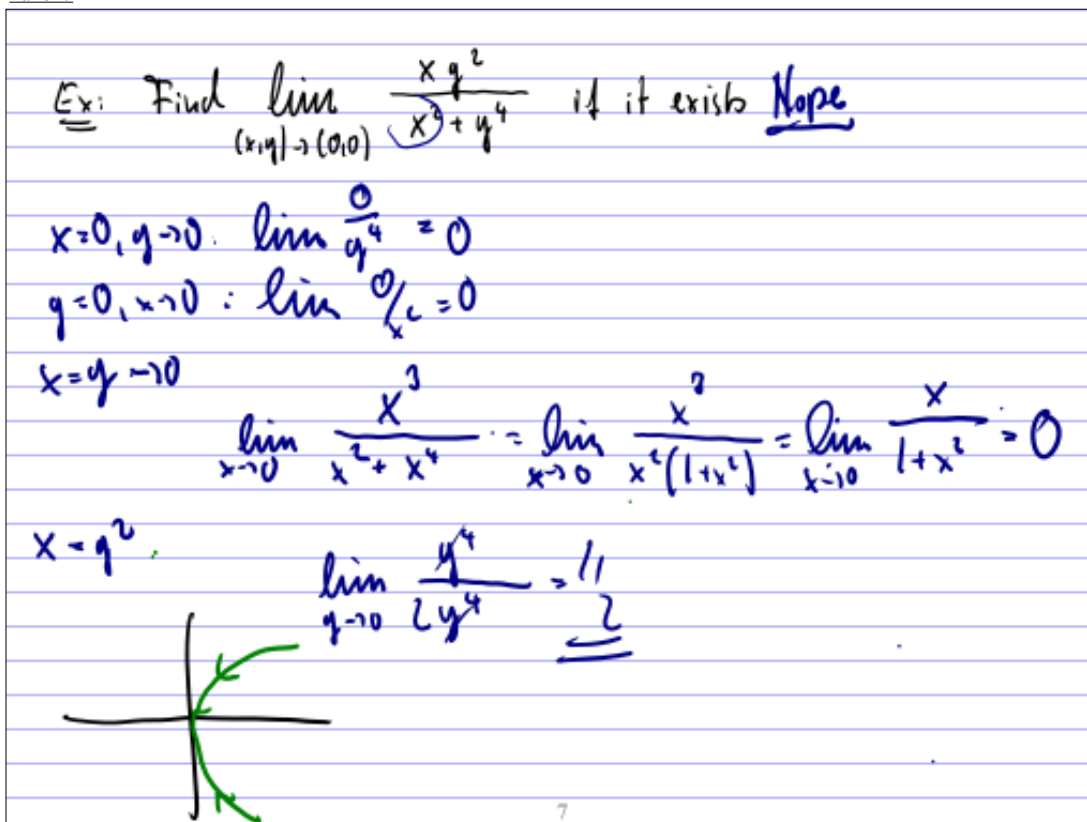 Ex: Find lim (x,y)→(0,0) xy²/(x²+y⁴) if it exists Nope
x=0, y→0: lim 0/y⁴ = 0
y=0, x→0: lim 0/x² = 0
x=y→0
lim x→0 x³/(x²+x⁴) = lim x→0 x³/(x²(1+x²)) = lim x→0 x/(1+x²) = 0
x=y²
lim y→0 y⁴/2y⁴ = 1/2
7